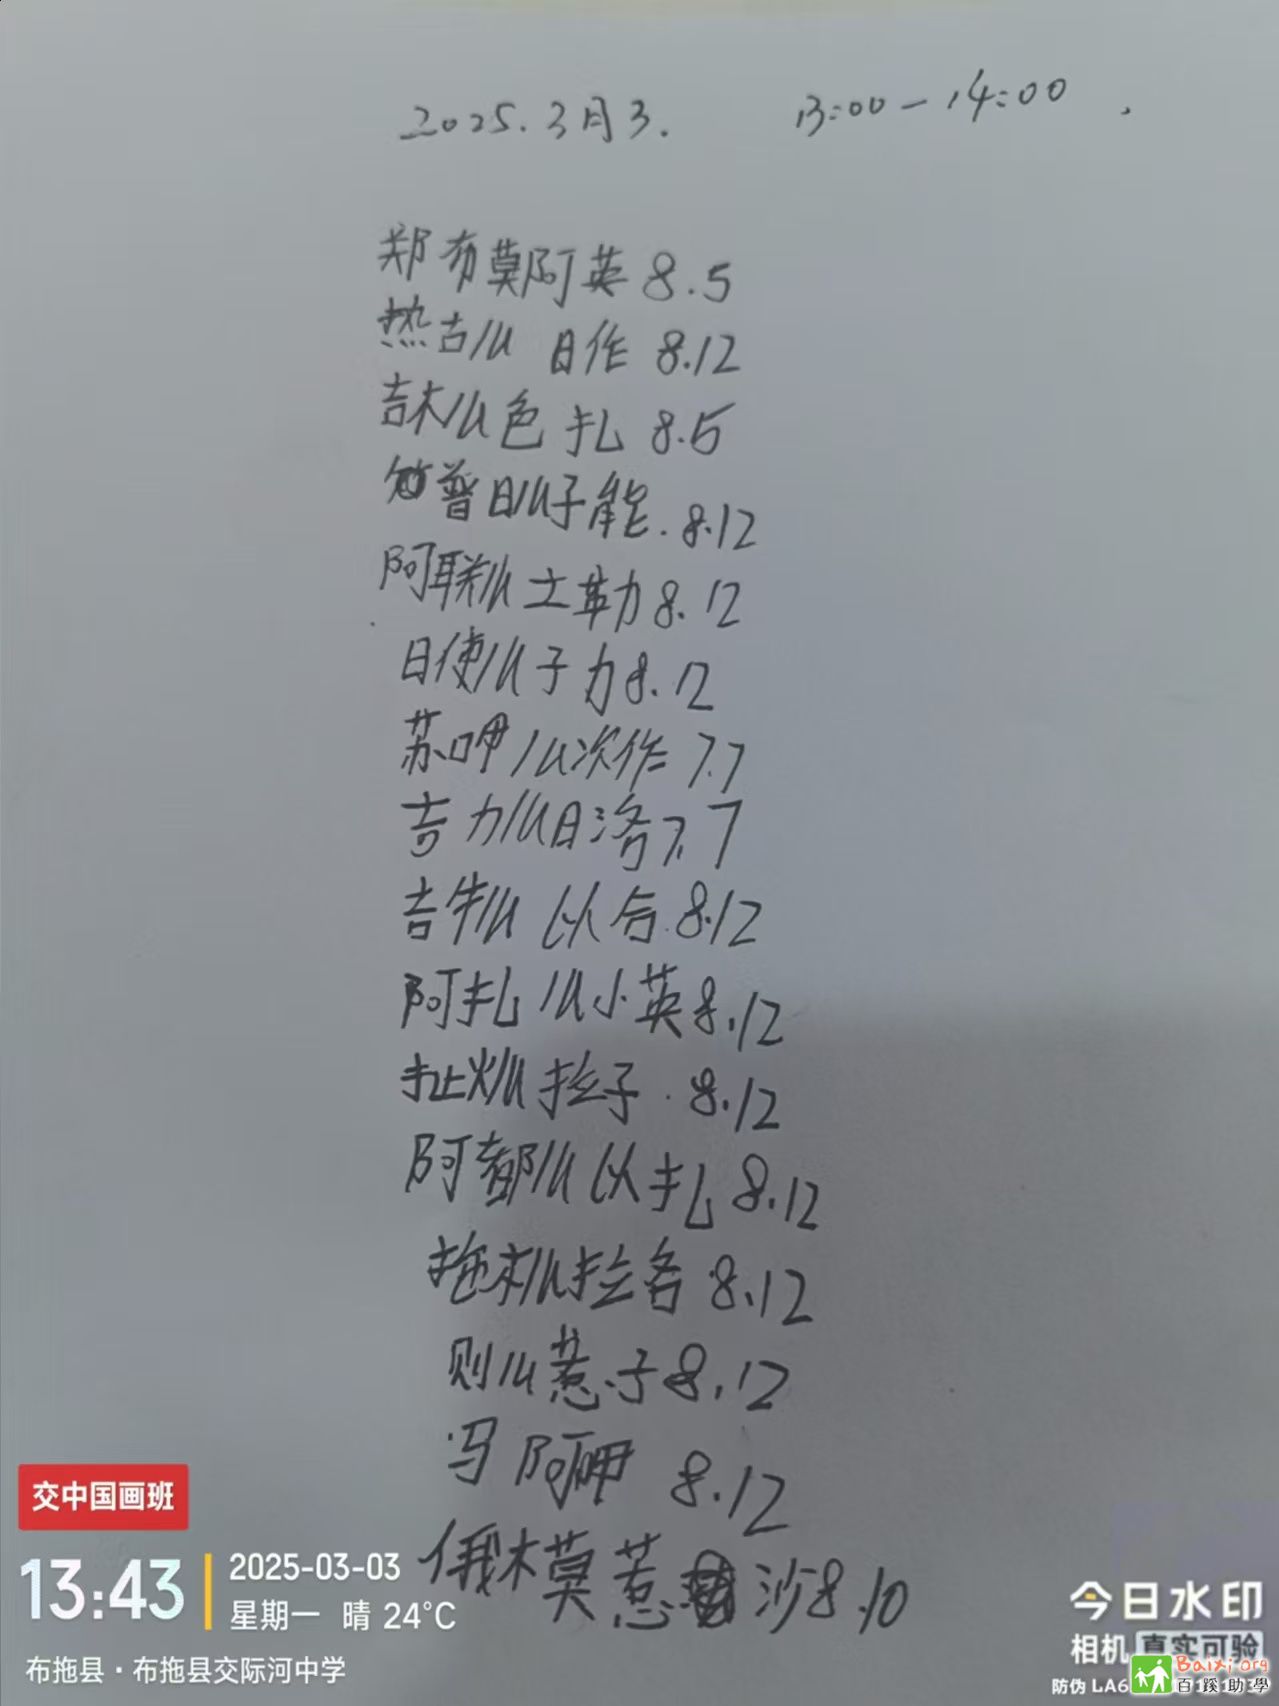 2025.3月3. 13:00-14:00
郑布莫阿英 8.5
热古么 日作 8.12
吉木么色扎 8.5
普日么子能. 8.12
阿联么土勒 8.12
日使么子力 8.12
苏呷么次作 7.7
吉力么日洛 7.7
吉牛么 以合 8.12
阿扎么小英 8.12
扯火么拉子. 8.12
阿都么以扎 8.12
拖木么拉各 8.12
则么惹子 8.12
冯阿呷 8.12
俄木莫惹沙 8.10
交中国画班
13:43
2025-03-03
星期一 晴 24°C
布拖县·布拖县交际河中学
今日水印
相机 真实可验
防伪 LA6
Baixi.org
百蹊助學